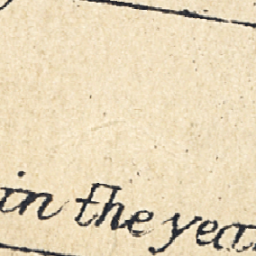 in the yea